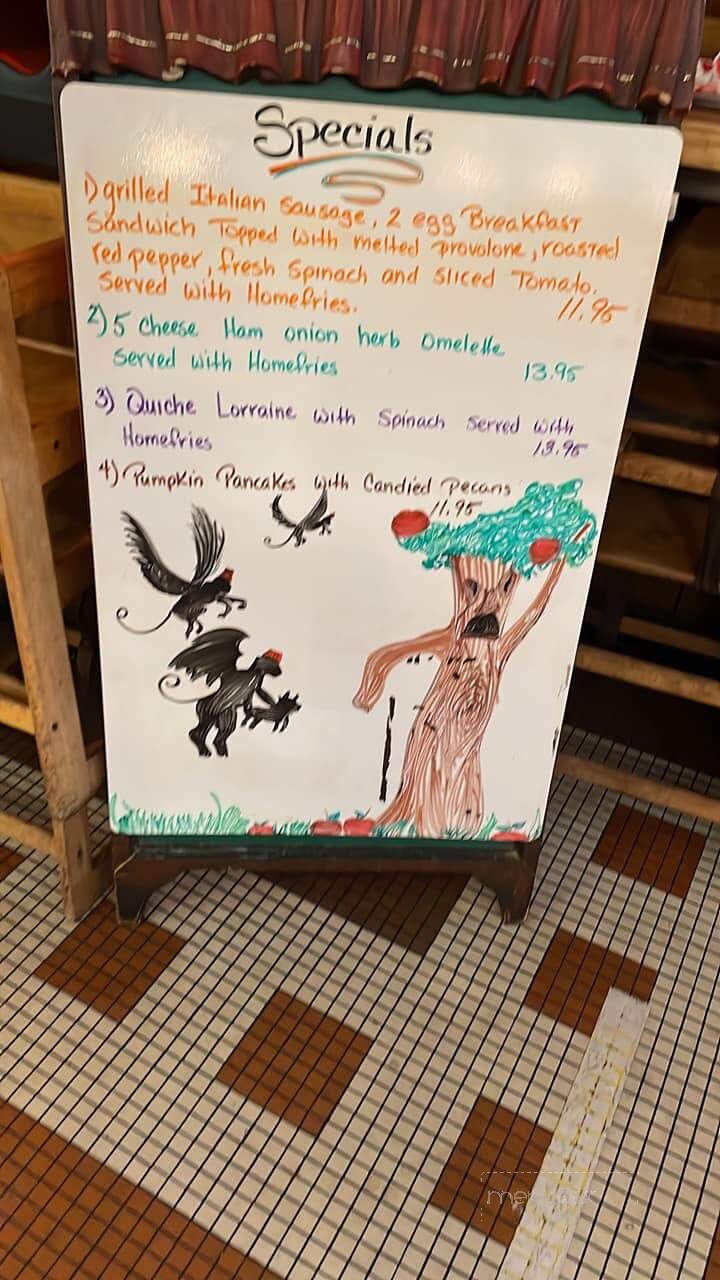 Specials
1) grilled Italian Sausage, 2 egg Breakfast
Sandwich Topped with melted provolone, roasted
red pepper, fresh Spinach and Sliced Tomato.
Served with Homefries.
11.95
2) 5 Cheese Ham onion herb Omelette
Served with Homefries
13.95
3) Quiche Lorraine with Spinach Served with
Homefries
13.95
4) Pumpkin Pancakes with Candied Pecans
11.95